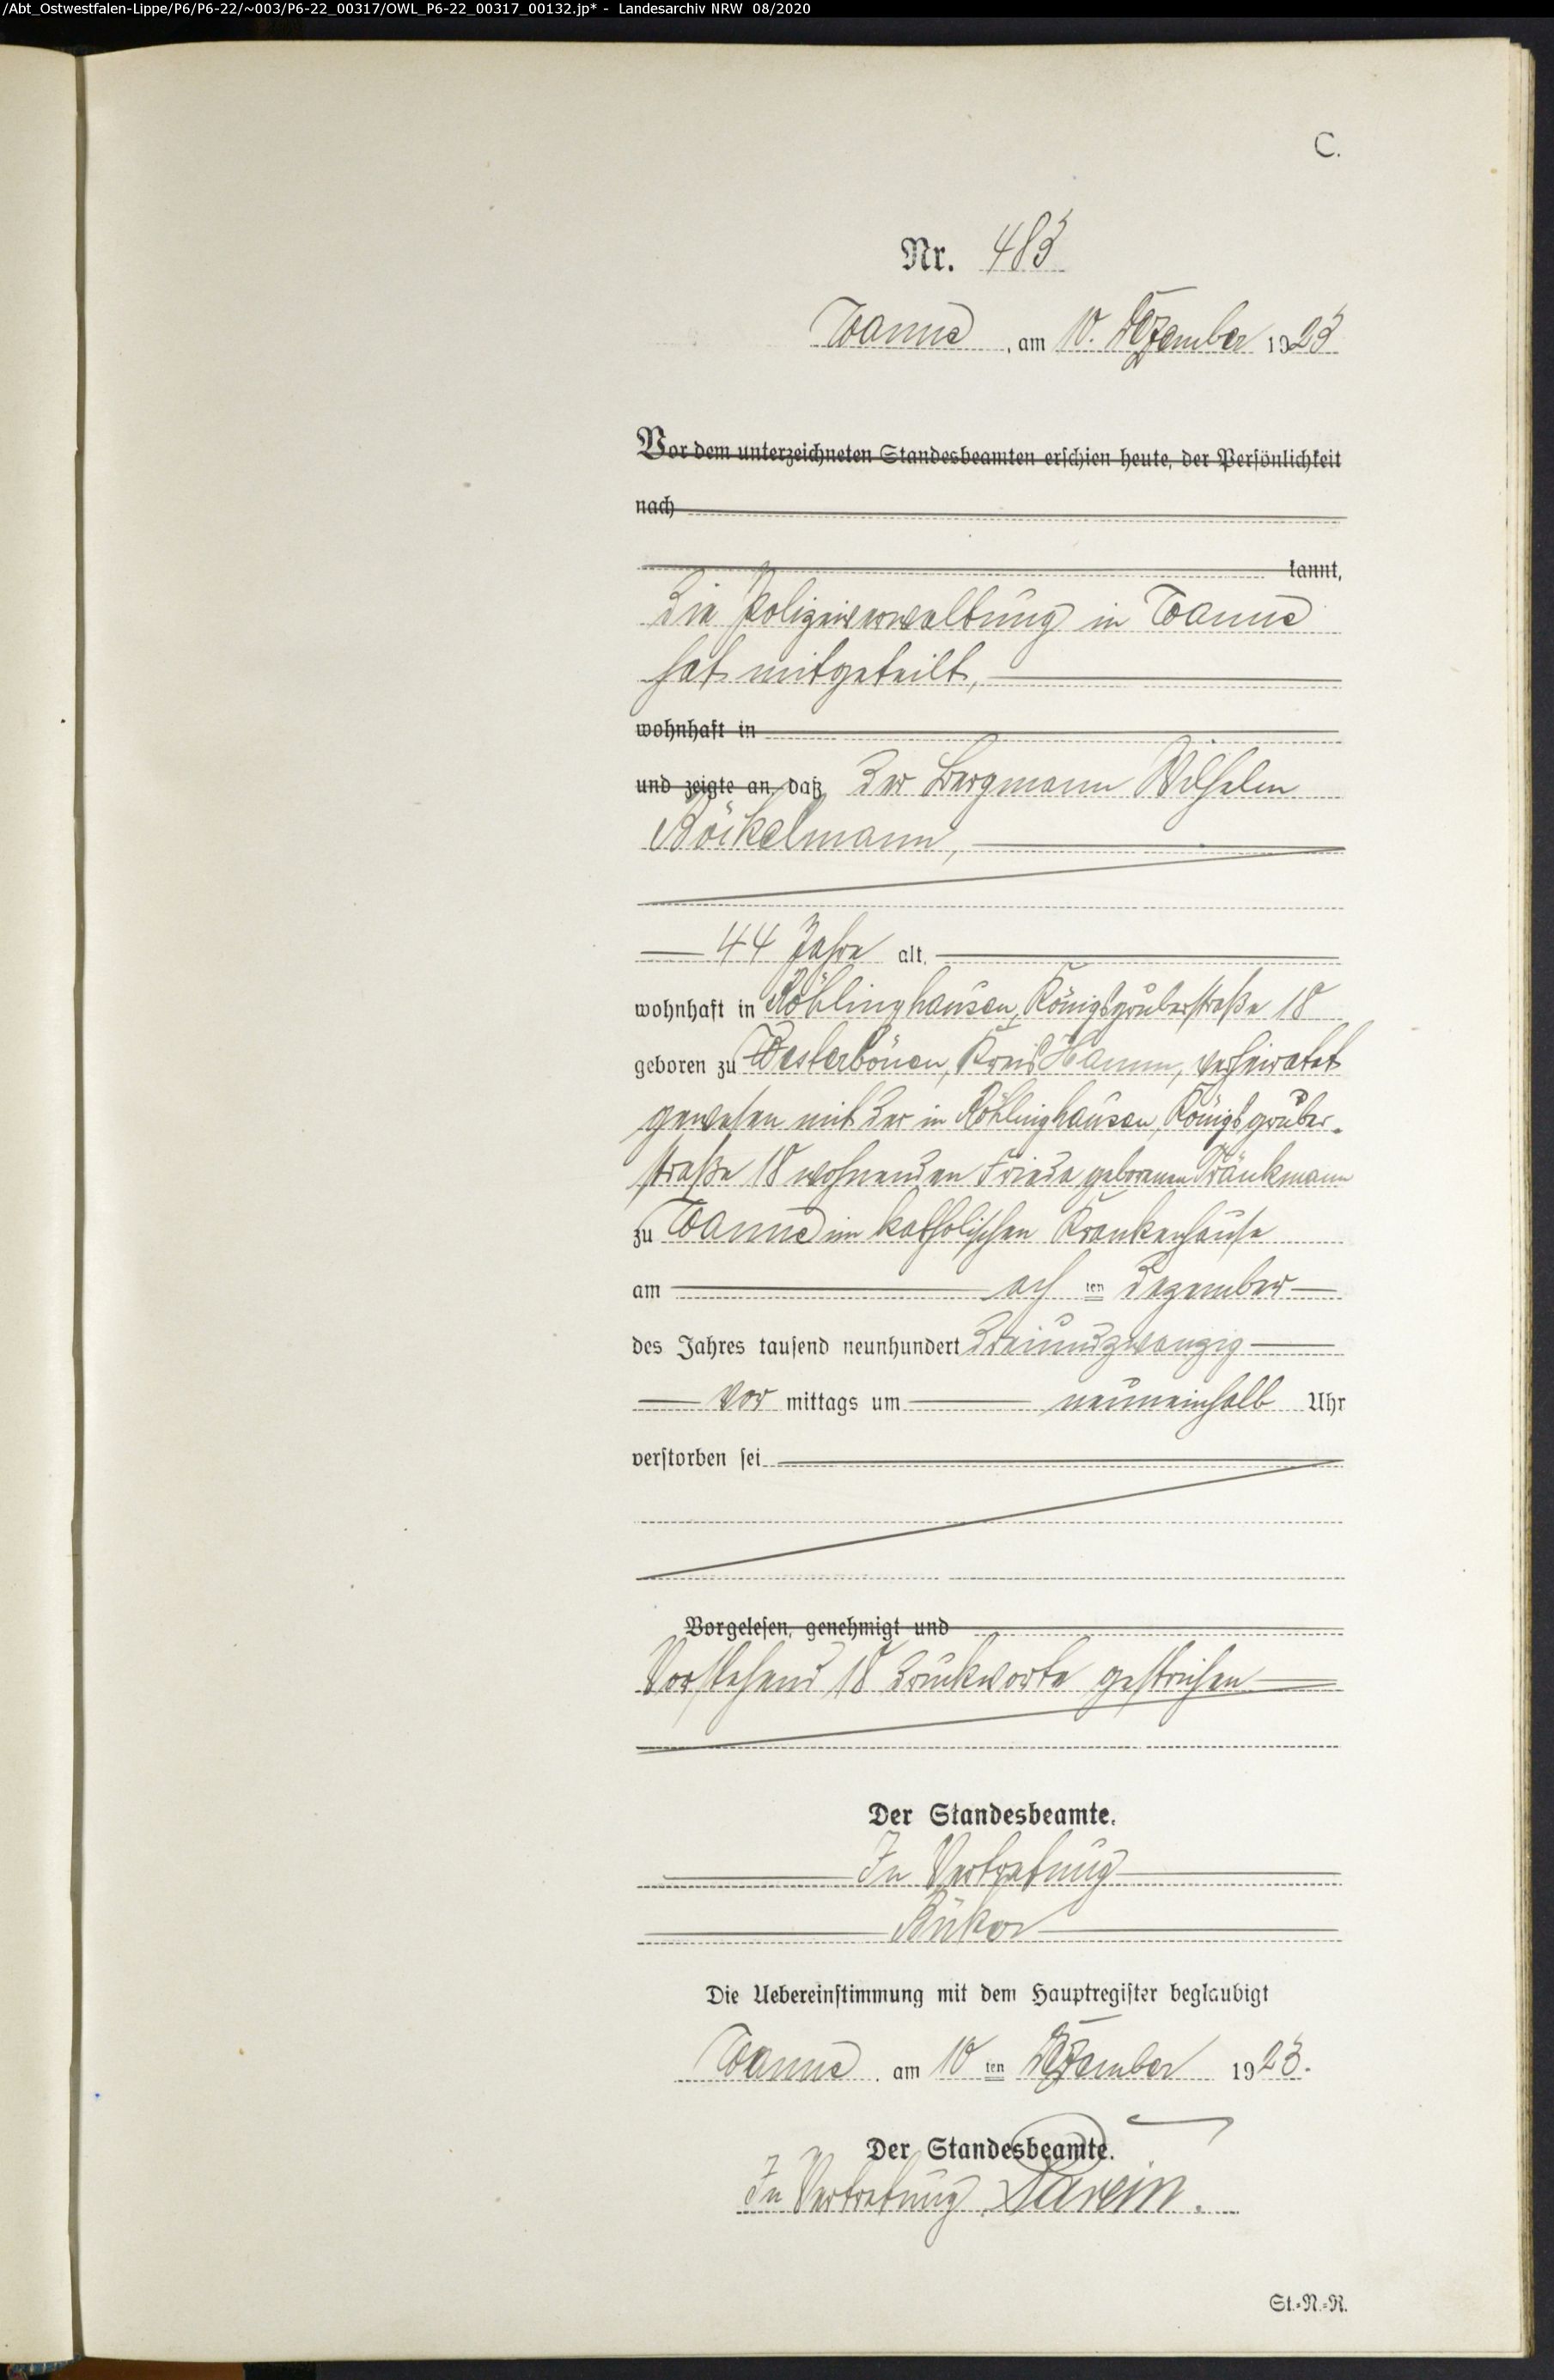 /Abt_Ostwestfalen-Lippe/P6/P6-22/~003/P6-22_00317/OWL_P6-22_00317_00132.jp* - Landesarchiv NRW 08/2020
C.
Nr. 483
Wanne, am 10. Dezember 1923
Vor dem unterzeichneten Standesbeamten erschien heute, der Persönlichkeit
nach
kannt,
Die Polizeiverwaltung in Wanne
hat mitgeteilt,
wohnhaft in
und zeigte an, daß der Bergmann Wilhelm
Böckelmann,
44 Jahre alt,
wohnhaft in Röhlinghausen, Königsgruberstraße 18
geboren zu Westerbönen, Kreis Hamm, verheiratet
gewesen mit der in Röhlinghausen, Königsgruber-
straße 18 wohnenden Frieda geborenen Tränkmann
zu Wanne im katholischen Krankenhause
am ach ten Dezember
des Jahres tausend neunhundert dreiundzwanzig
Vor mittags um neuneinhalb Uhr
verstorben sei
Vorgelesen, genehmigt und
Vorstehend 18 Druckworte gestrichen
Der Standesbeamte.
In Vertretung
Die Uebereinstimmung mit dem Hauptregister beglaubigt
Wanne, am 10 ten Dezember 1923.
Der Standesbeamte.
In Vertretung
St.-N.-R.